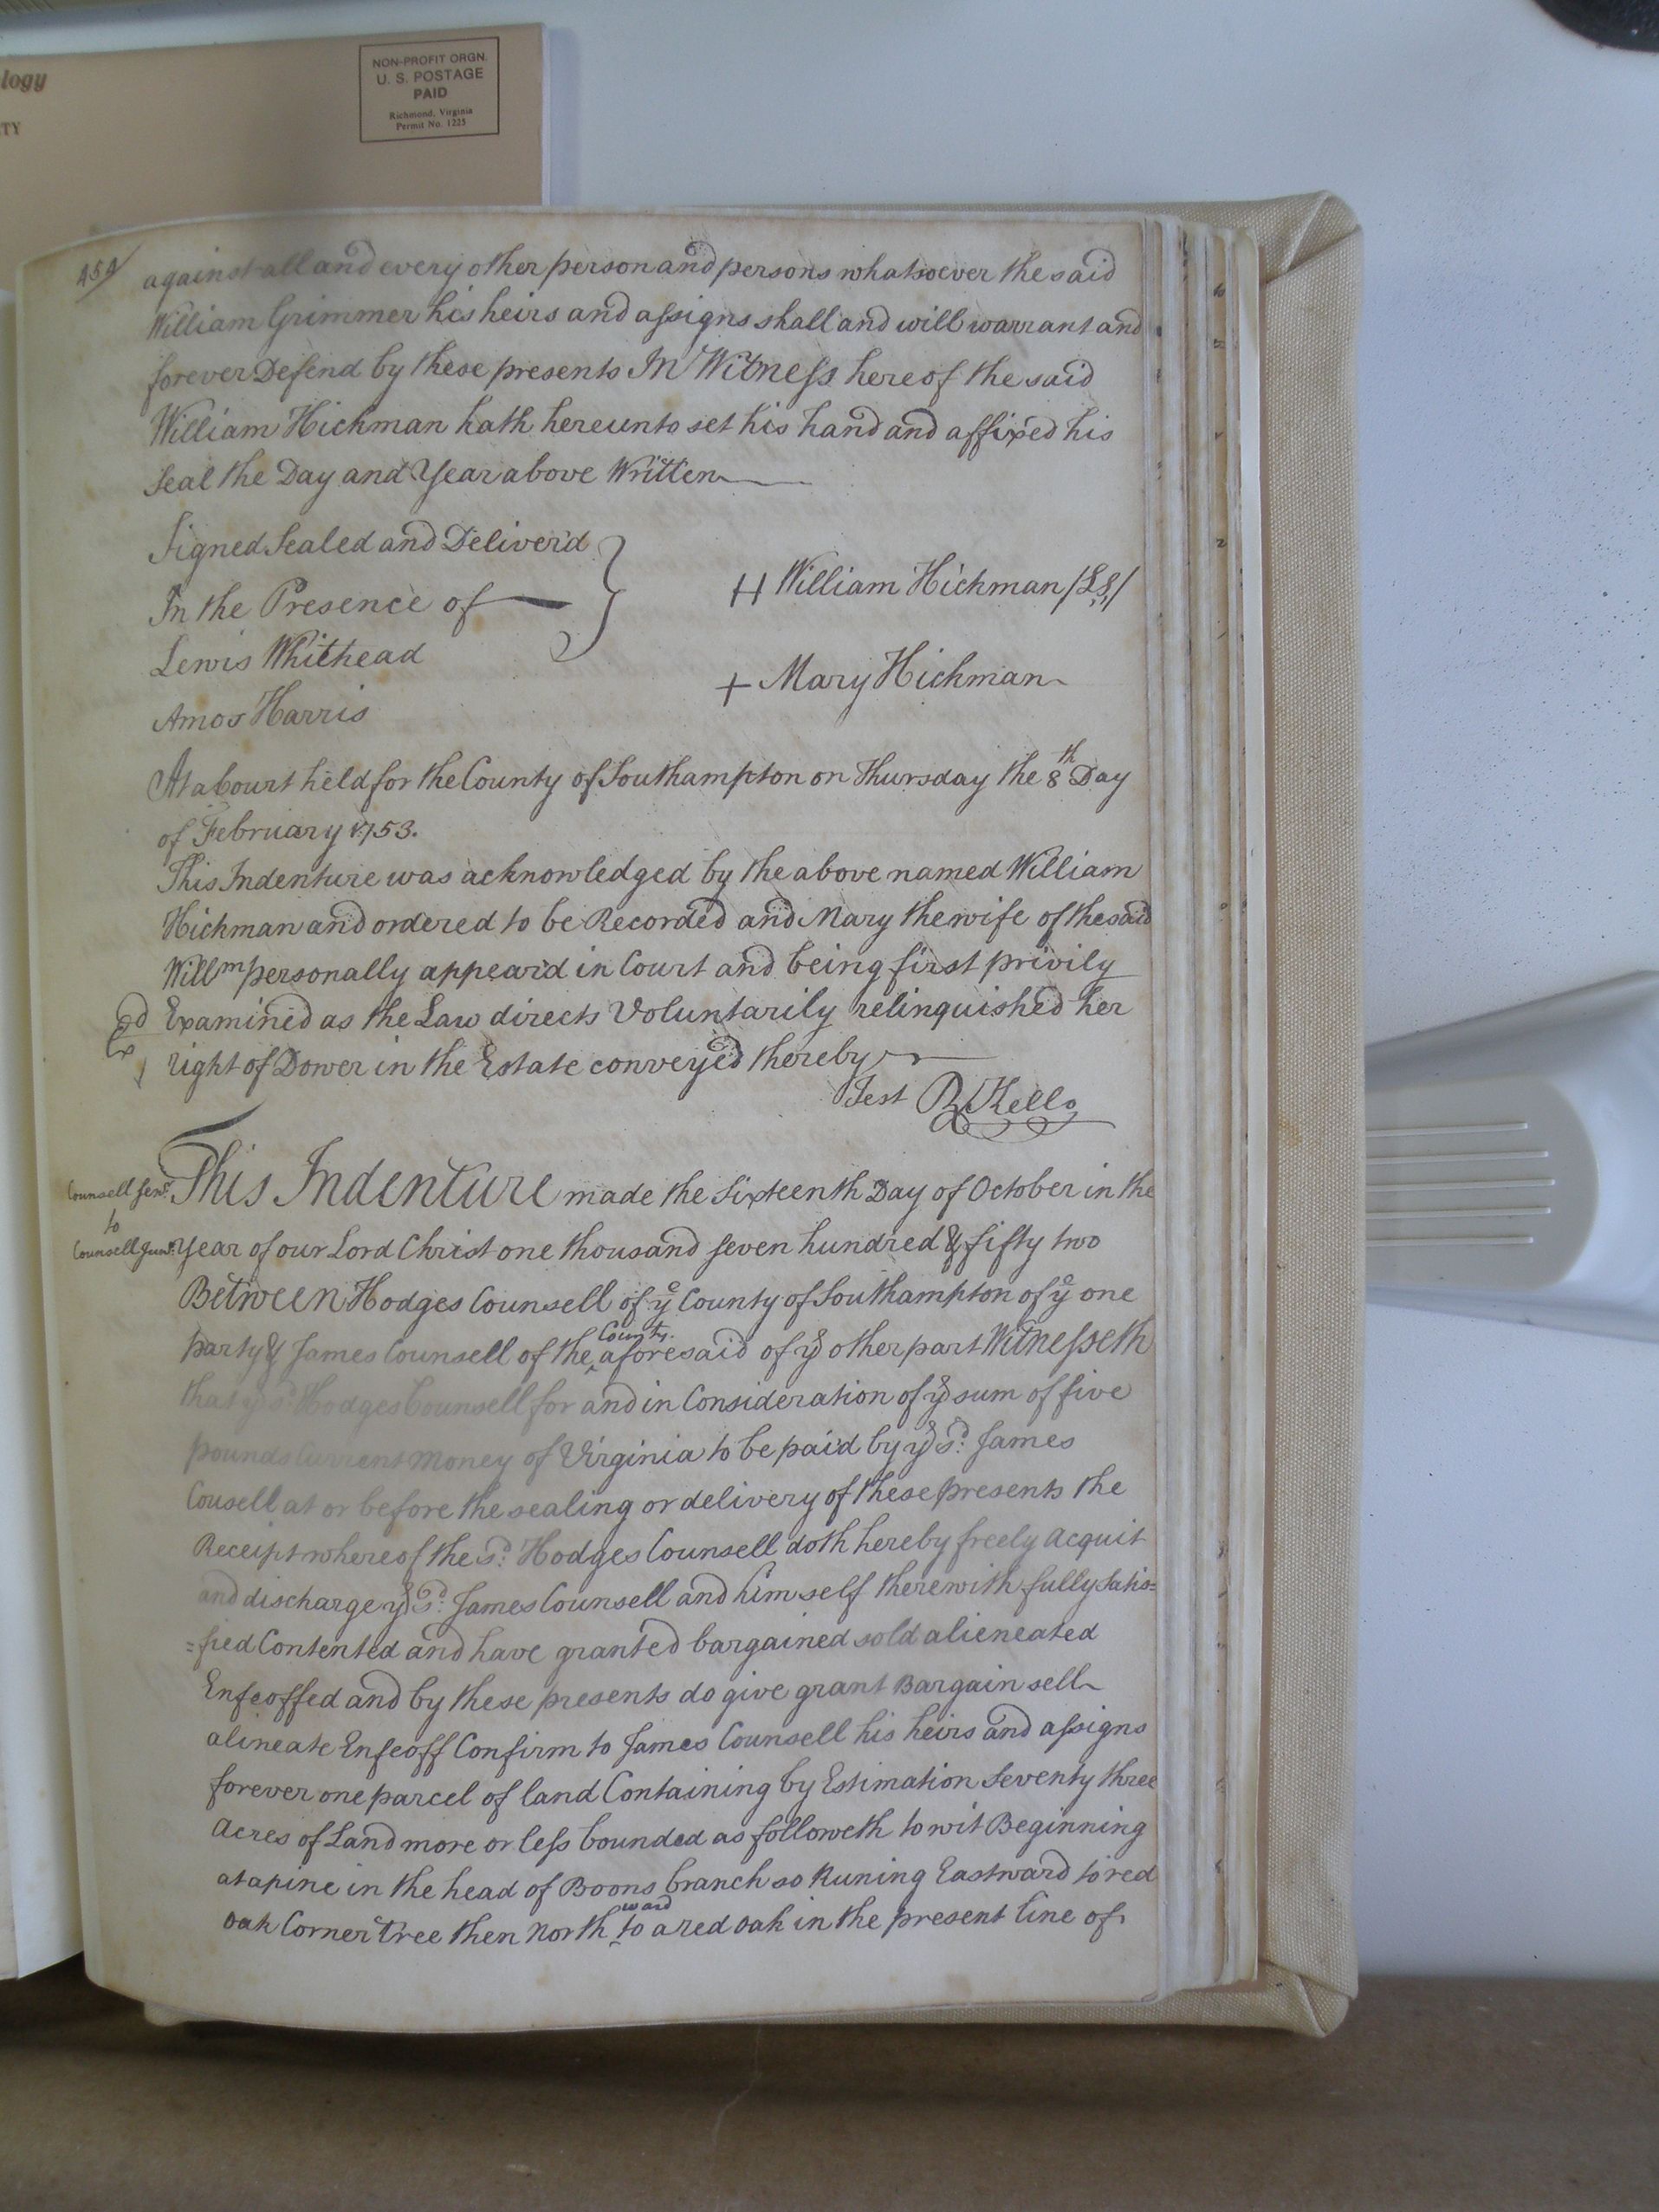 logy
TY
NON-PROFIT ORGN.
U. S. POSTAGE
PAID
Richmond, Virginia
Permit No. 1225
454
against all and every other person and persons whatsoever the said
William Grimmer his heirs and assigns shall and will warrant and
forever Defend by these presents In Witness hereof the said
William Hickman hath hereunto set his hand and affixed his
Seal the Day and Year above Written
Signed Sealed and Deliver'd
In the Presence of
Lewis Whithead
Amos Harris
H William Hickman /LS/
+ Mary Hickman
At a Court held for the County of Southampton on Thursday the 8th Day
of February 1753.
This Indenture was acknowledged by the above named William
Hickman and ordered to be Recorded and Mary the wife of the said
Willm personally appear'd in Court and being first privily
Examined as the Law directs Voluntarily relinquished her
right of Dower in the Estate conveyed thereby
Test R Kello
Counsell Senr.
to
Counsell Junr.
This Indenture made the Sixteenth Day of October in the
Year of our Lord Christ one thousand seven hundred & fifty two
Between Hodges Counsell of ye County of Southampton of ye one
party & James Counsell of the County aforesaid of ye other part Witnesseth
that ye sd. Hodges Counsell for and in Consideration of ye sum of five
pounds Current Money of Virginia to be paid by ye sd. James
Cousell at or before the sealing or delivery of these presents the
Receipt whereof the sd. Hodges Counsell doth hereby freely acquit
and discharge ye sd. James Counsell and himself therewith fully Satis=
=fied Contented and have granted bargained sold alieneated
Enfeoffed and by these presents do give grant Bargain sell
alineate Enfeoff Confirm to James Counsell his heirs and assigns
forever one parcel of land Containing by Estimation Seventy three
Acres of Land more or less bounded as followeth to wit Beginning
at a pine in the head of Boons branch so Runing Eastward to red
oak Corner tree then Northward to a red oak in the present line of